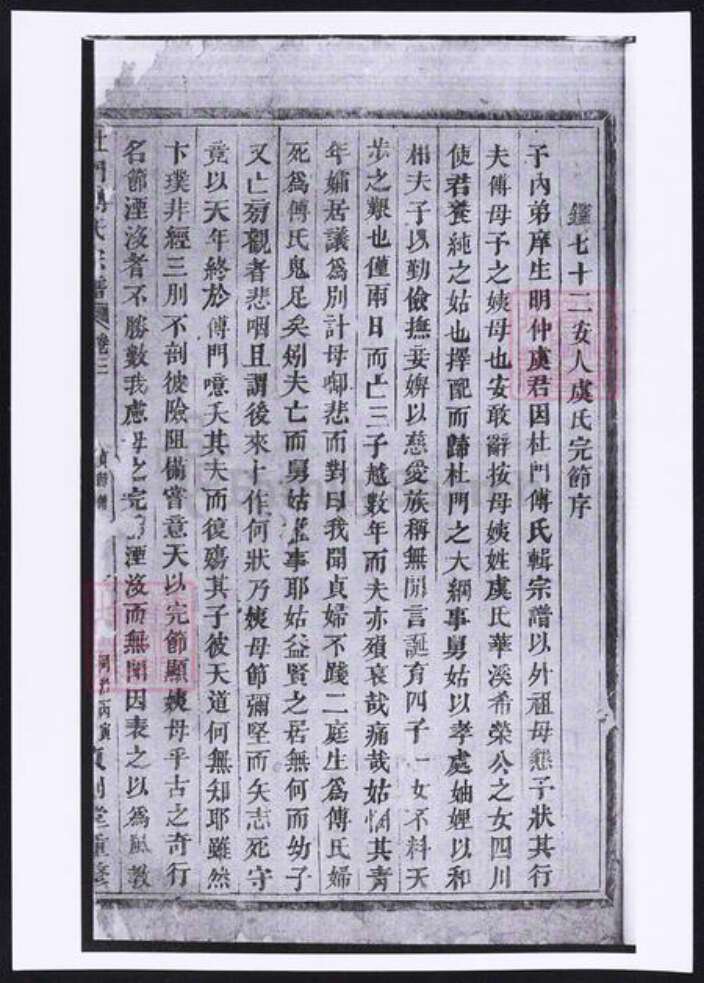 鑑七十二安人虞氏完節序
予內弟庠生明仲虞君因杜門傅氏輯宗譜以外祖母懇予狀其行
夫傅母予之姨母也安敢辭按母姨姓虞氏華溪希榮公之女四川
使君養純之姑也擇配而歸杜門之大綱事舅姑以孝處妯娌以和
相夫子以勤儉撫妾婢以慈愛族稱無間言誕育四子一女不料天
步之艱也僅兩日而亡三子越數年而夫亦殞哀哉痛哉姑憫其青
年孀居議為別計母啣悲而對曰我聞貞婦不踐二庭生為傅氏婦
死為傅氏鬼足矣矧夫亡而舅姑事耶姑益賢之居無何而幼子
又亡旁觀者悲咽且謂後來十作何狀乃姨母節彌堅而矢志死守
竟以天年終於傅門噫夭其夫而復殤其子彼天道何無知耶雖然
卞璞非經三刖不剖彼險阻備嘗意天以完節顯姨母乎古之奇行
名節湮沒者不勝數我慮母之完節湮沒而無聞因表之以為風教
杜門傅氏宗譜 卷三 同治丙寅